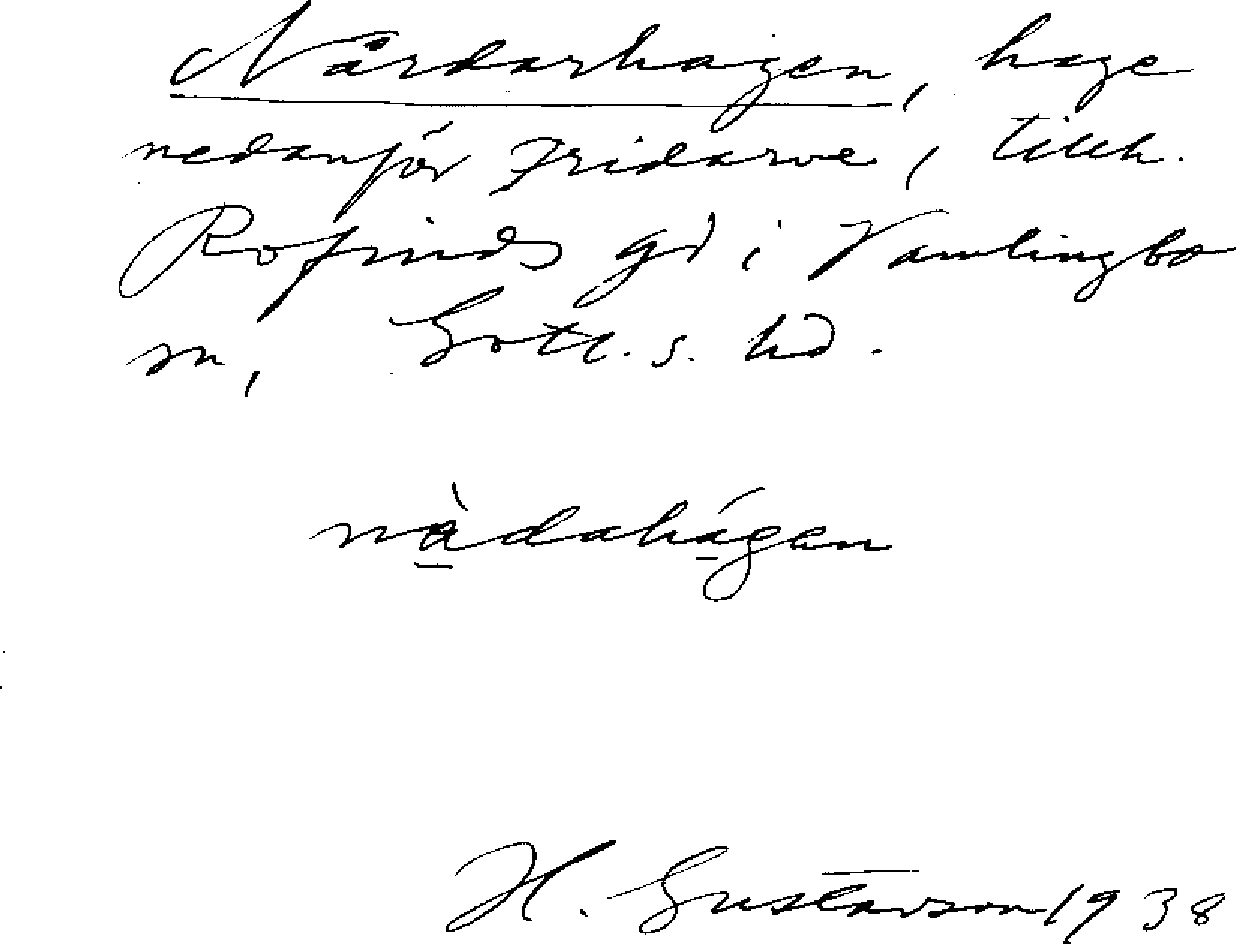 Nårdarhagen, hage
nedanför Fridarve, tillh.
Rofinds gd i Vamlingbo
sn, Gotl. s. hd.
nàdahágen
H. Gustavson 1938